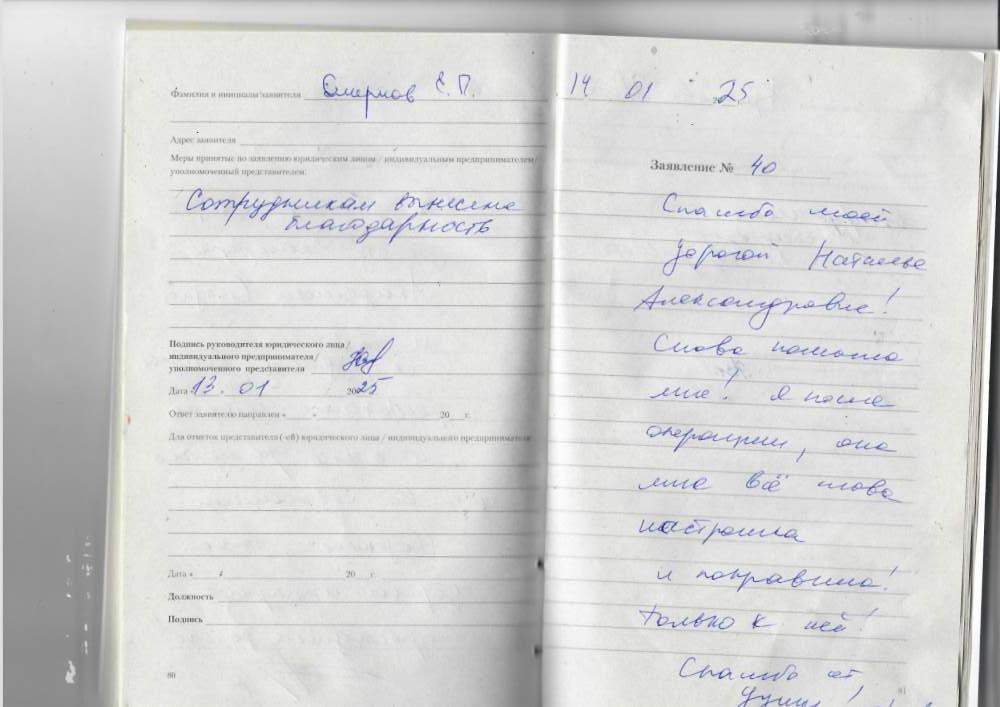 Фамилия и инициалы заявителя Смирнов Е.П.
Адрес заявителя
Меры принятые по заявлению юридическим лицом / индивидуальным предпринимателем/
уполномоченный представителем:
Сотрудникам вынесена
благодарность
Подпись руководителя юридического лица/
индивидуального предпринимателя/
уполномоченного представителя
Дата 13. 01 2025
Ответ заявителю направлен « 20 г.
Для отметок представителя (-ей) юридического лица / индивидуального предпринимателя
Дата « 20 г.
Должность
Подпись
80
14 01 2025
Заявление № 40
Спасибо моей
дорогой Наталье
Александровне!
Снова помогла
мне! Я после
операции, она
мне всё снова
настроила
и поправила!
Только к ней!
Спасибо от
души!
81